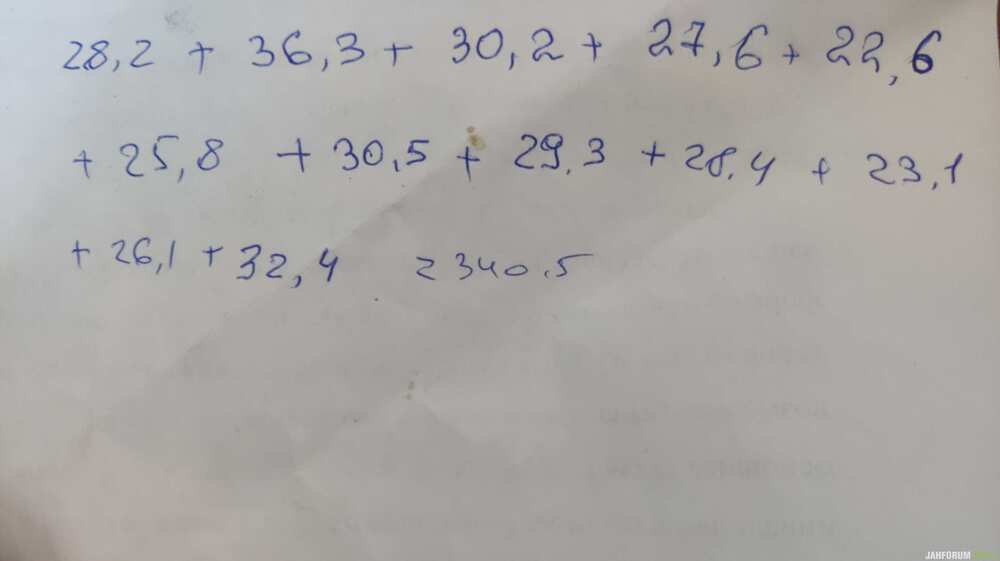 28,2 + 36,3 + 30,2 + 27,6 + 22,6
+ 25,8 + 30,5 + 29.3 + 28.4 + 23,1
+ 26,1 + 32,4 = 340.5
JAHFORUM